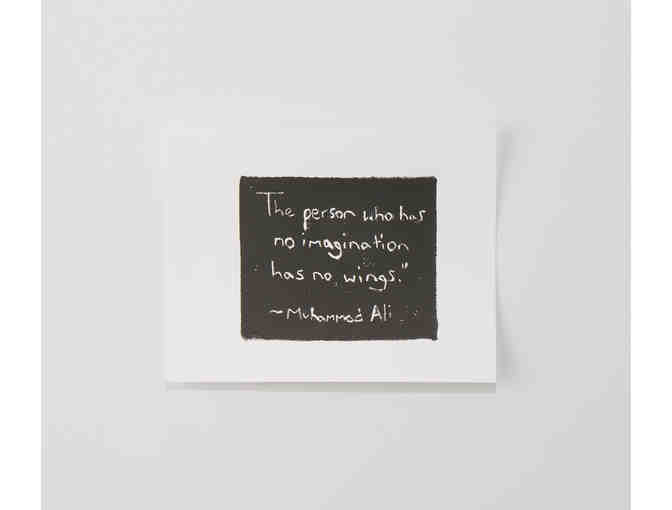 The person who has
no imagination
has no wings."
~Muhammad Ali